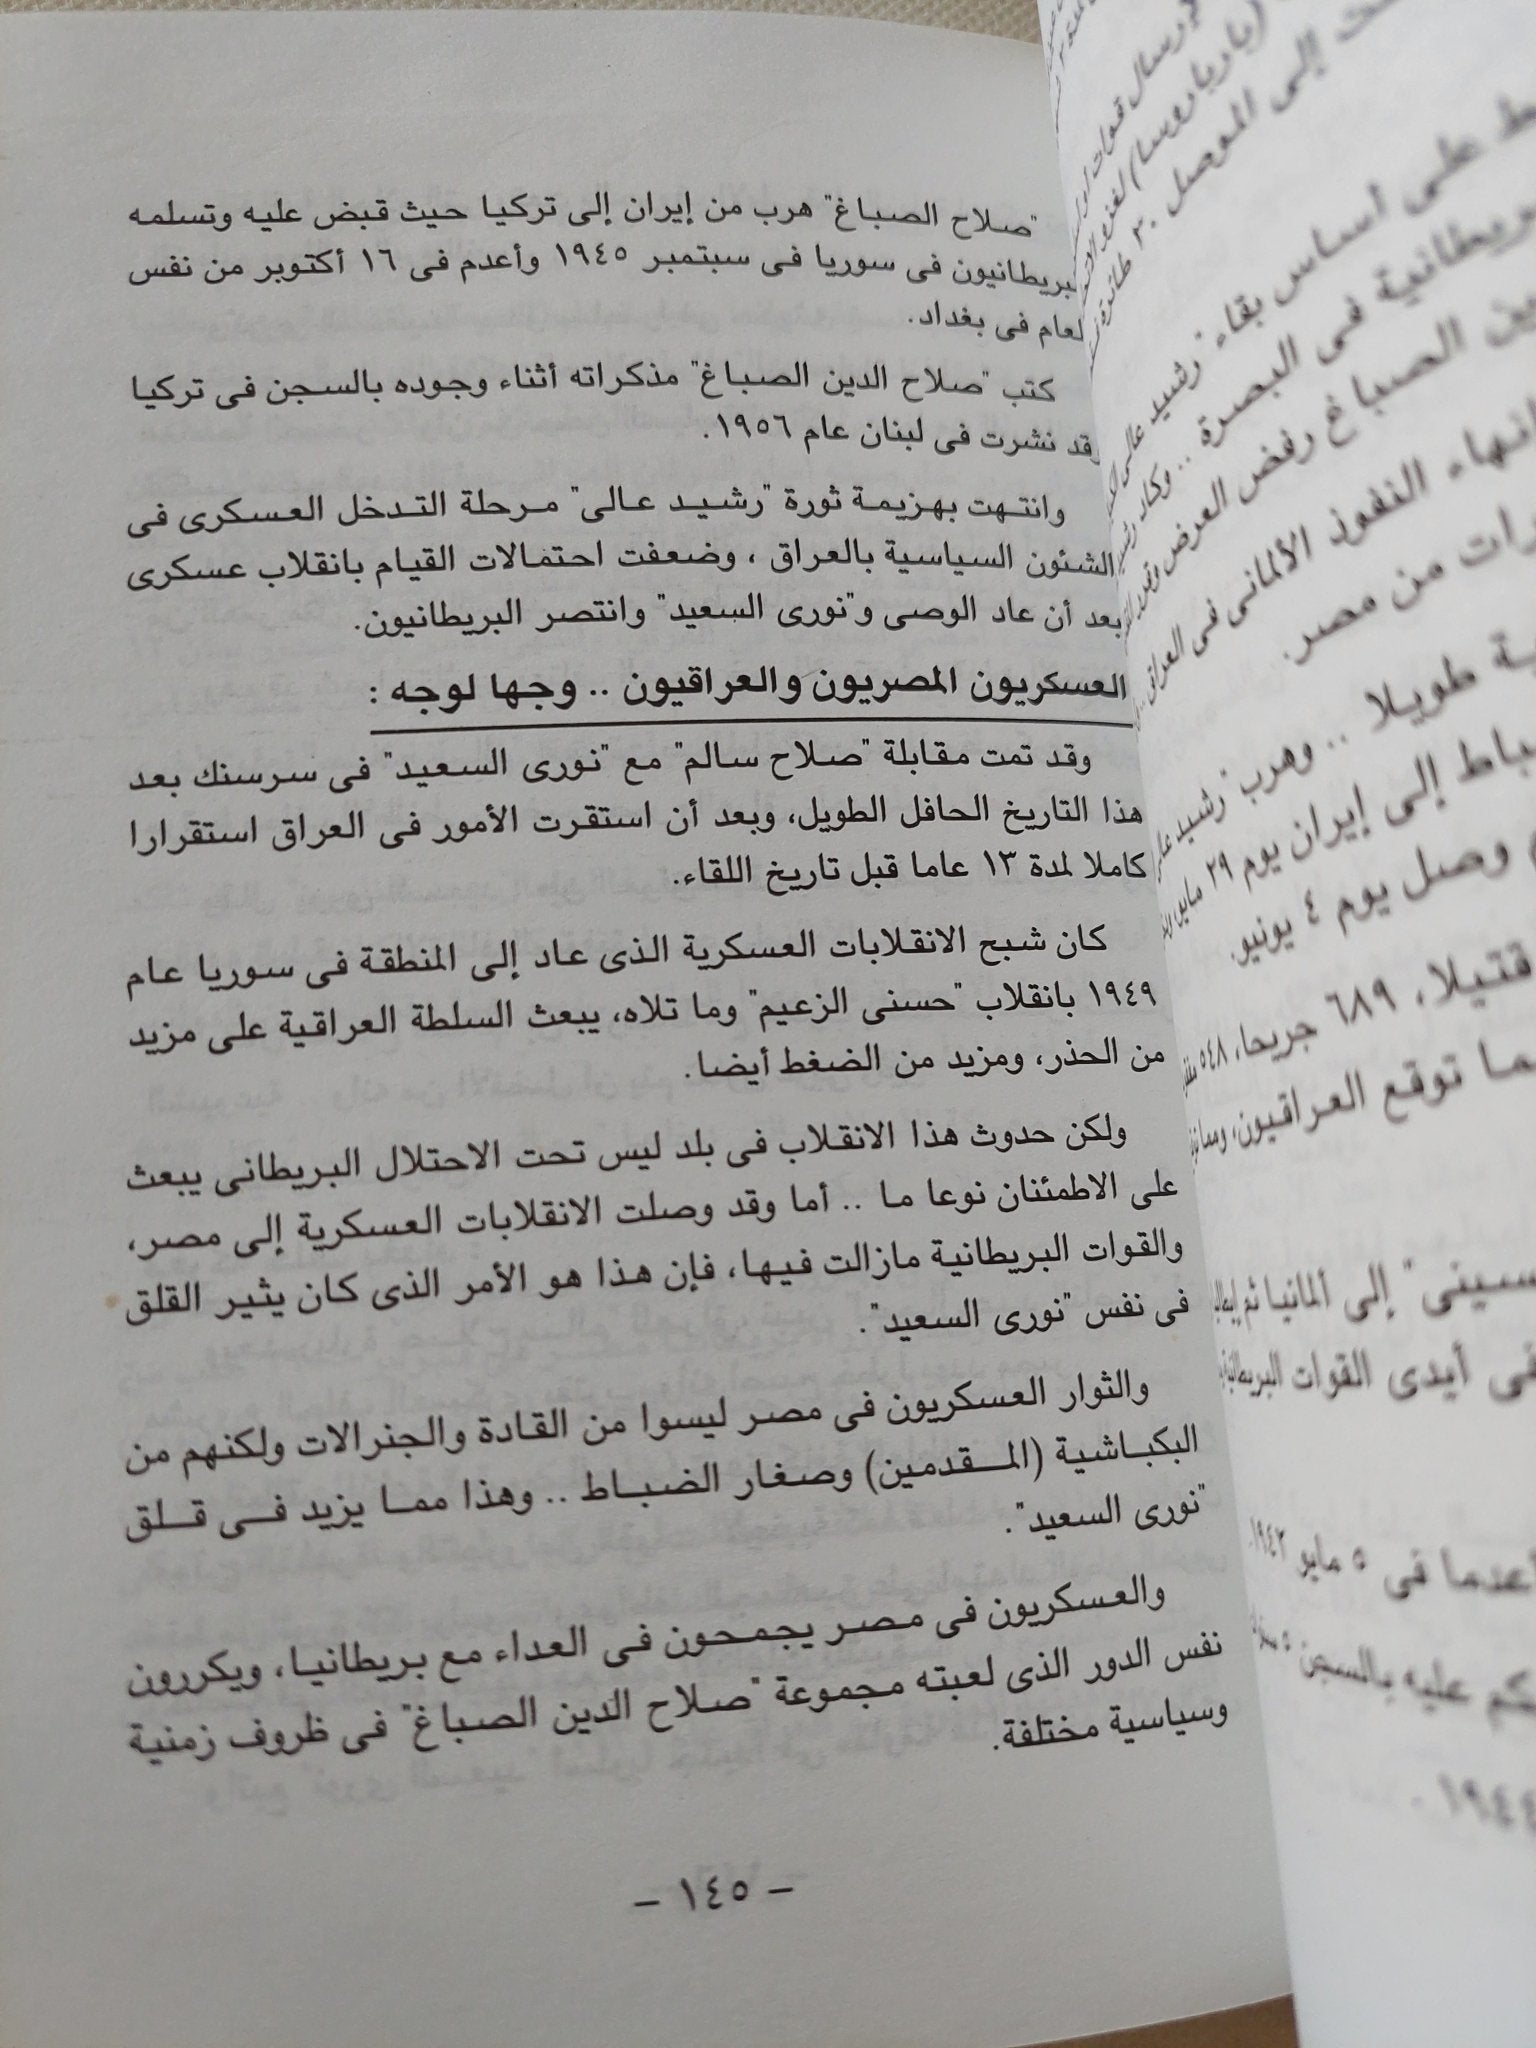 "صلاح الصباغ" هرب من إيران إلى تركيا حيث قبض عليه وتسلمه
لبريطانيون فى سوريا فى سبتمبر ١٩٤٥ وأعدم فى ١٦ أكتوبر من نفس
لعام فى بغداد.
كتب "صلاح الدين الصباغ" مذكراته أثناء وجوده بالسجن فى تركيا
وقد نشرت فى لبنان عام ١٩٥٦.
وانتهت بهزيمة ثورة "رشيد عالى" مرحلة التدخل العسكرى فى
الشئون السياسية بالعراق ، وضعفت احتمالات القيام بانقلاب عسكرى
بعد أن عاد الوصى و"نورى السعيد" وانتصر البريطانيون.
العسكريون المصريون والعراقيون .. وجها لوجه :
وقد تمت مقابلة "صلاح سالم" مع "نورى السعيد" فى سرسنك بعد
هذا التاريخ الحافل الطويل، وبعد أن استقرت الأمور فى العراق استقرارا
كاملا لمدة ١٣ عاما قبل تاريخ اللقاء.
كان شبح الانقلابات العسكرية الذى عاد إلى المنطقة فى سوريا عام
١٩٤٩ بانقلاب "حسنى الزعيم" وما تلاه، يبعث السلطة العراقية على مزيد
من الحذر، ومزيد من الضغط أيضا.
ولكن حدوث هذا الانقلاب فى بلد ليس تحت الاحتلال البريطانى يبعث
على الاطمئنان نوعا ما .. أما وقد وصلت الانقلابات العسكرية إلى مصر،
والقوات البريطانية مازالت فيها، فإن هذا هو الأمر الذى كان يثير القلق
فى نفس "نورى السعيد".
والثوار العسكريون فى مصر ليسوا من القادة والجنرالات ولكنهم من
البكباشية (المقدمين) وصغار الضباط .. وهذا مما يزيد فى قلق
"نورى السعيد".
والعسكريون فى مصر يجمحون فى العداء مع بريطانيا، ويكررون
نفس الدور الذى لعبته مجموعة "صلاح الدين الصباغ" فى ظروف زمنية
وسياسية مختلفة.
– ١٤٥ –
إرسال قوات
لغزو
إلى الموصل ٢٠ طائرة
على أساس بقاء "رشيد عالى
فى البصرة .. وكان
الصباغ رفض العرض وقدم
النفوذ الألمانى فى العراق
من مصر.
طويلا .. وهرب "رشيد
إلى إيران يوم ٢٩ مايو
وصل يوم ٤ يونيو.
قتيلا، ٦٨٩ جريحا، ٥٤٨
توقع العراقيون،
إلى ألمانيا ثم
فى أيدى القوات البريطانية
أعدما فى ٥ مايو ١٩٤٢.
عليه بالسجن ٥
١٩٤٤.